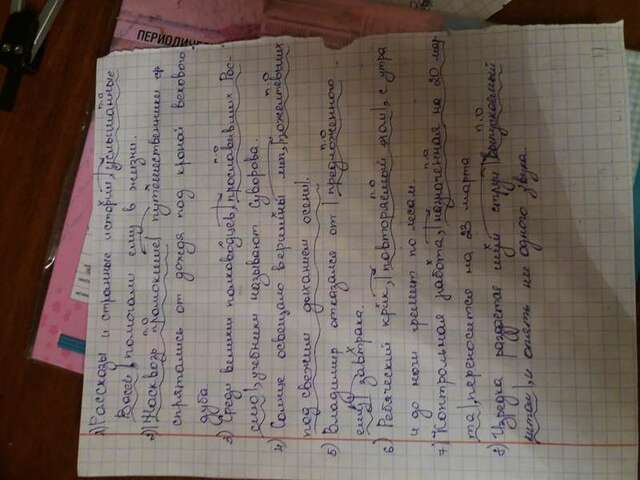 1) Рассказы и странные истории, услышанные
п.о
Васей, помогали ему в жизни.
2) Насквозь промокшие путешественники
п.о
спрятались от дождя под кроной векового
дуба.
3) Среди великих полководцев, прославивших Рос-
п.о
сию, учебники называют Суворова.
4) Солнце освещало вершины лип, пожелтевших
п.о
под свежим дыханием осени.
5) Владимир отказался от предложенного
п.о
ему завтрака.
6) Ребяческий крик, повторяемый эхом, с утра
п.о
и до ночи гремит по лесам.
7) Контрольная работа, назначенная на 20 мар-
п.о
та, переносится на 23 марта
8) Изредка раздастся шум струи выпускаемый
п.о
, и опять ни одного звука.
ПЕРИОДИЧ